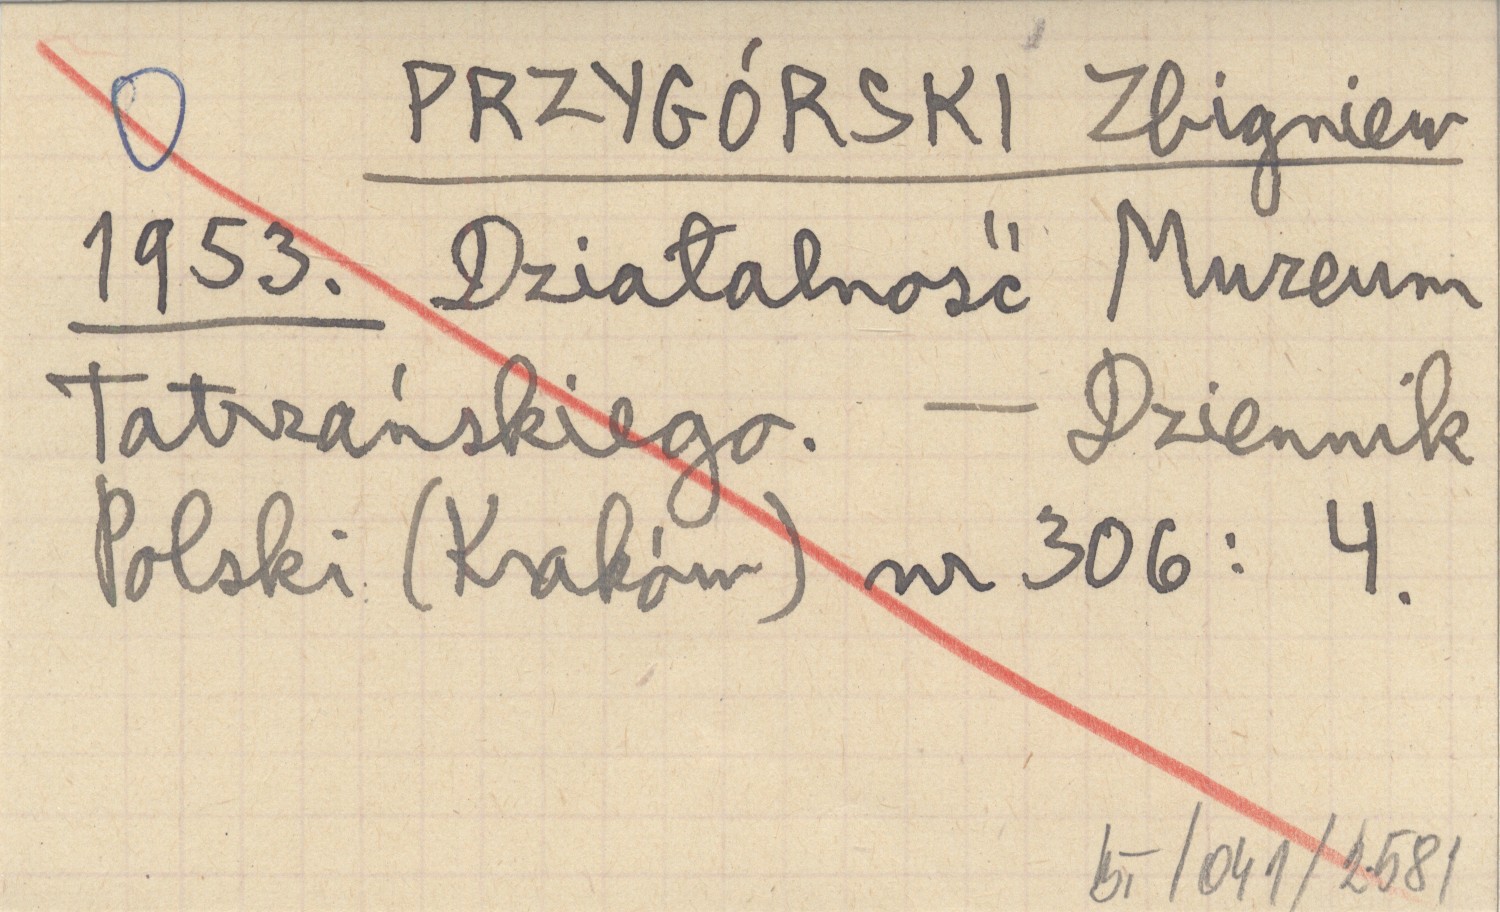 PRZYGÓRSKI Zbigniew
1953. Działalność Muzeum
Tatrzańskiego. — Dziennik
Polski (Kraków) nr 306: 4.
/041/2581